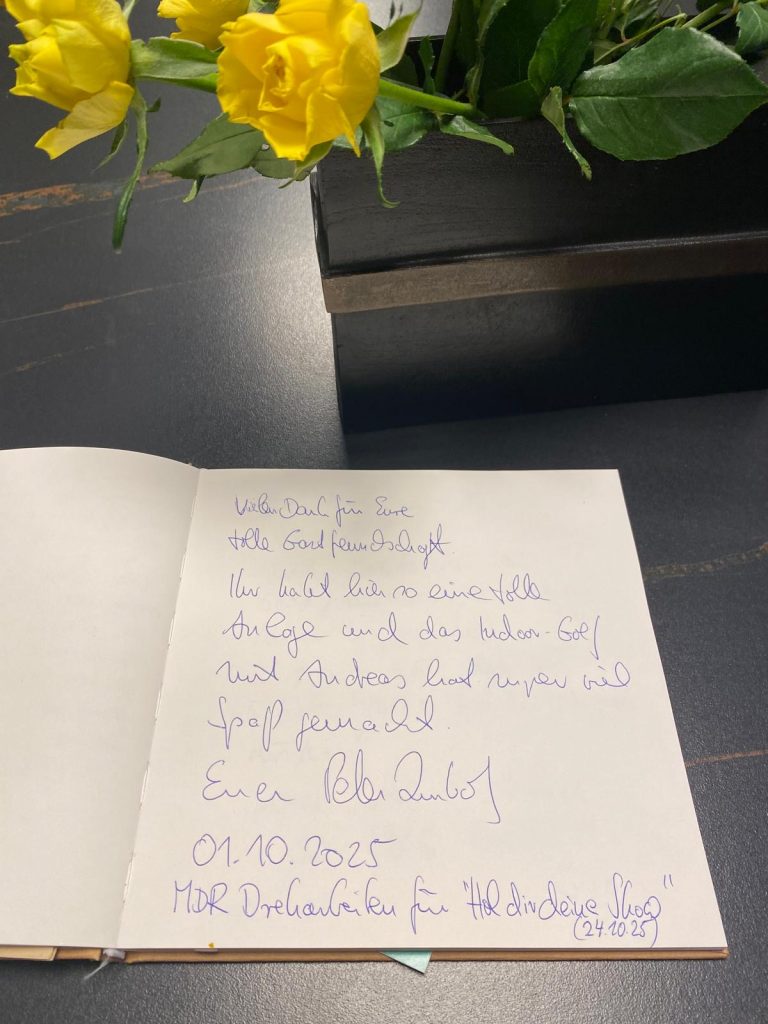 Vielen Dank für Eure
tolle Gastfreundschaft.
Ihr habt hier so eine tolle
Anlage und das Indoor-Golf
mit Andreas hat super viel
Spaß gemacht.
Euer Peter Imhof
01.10.2025
MDR Dreharbeiten für "Hol dir deine Show"
(24.10.25)